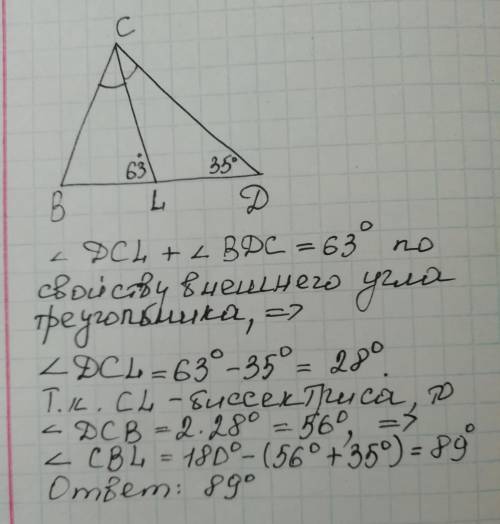 C
63°
35°
B
L
D
∠ DCL + ∠ BDC = 63° по
свойству внешнего угла
треугольника, =>
∠DCL = 63° - 35° = 28°.
Т.к. CL - биссектриса, то
∠ DCB = 2·28° = 56°, =>
∠ CBL = 180° - (56° + 35°) = 89°
Ответ: 89°